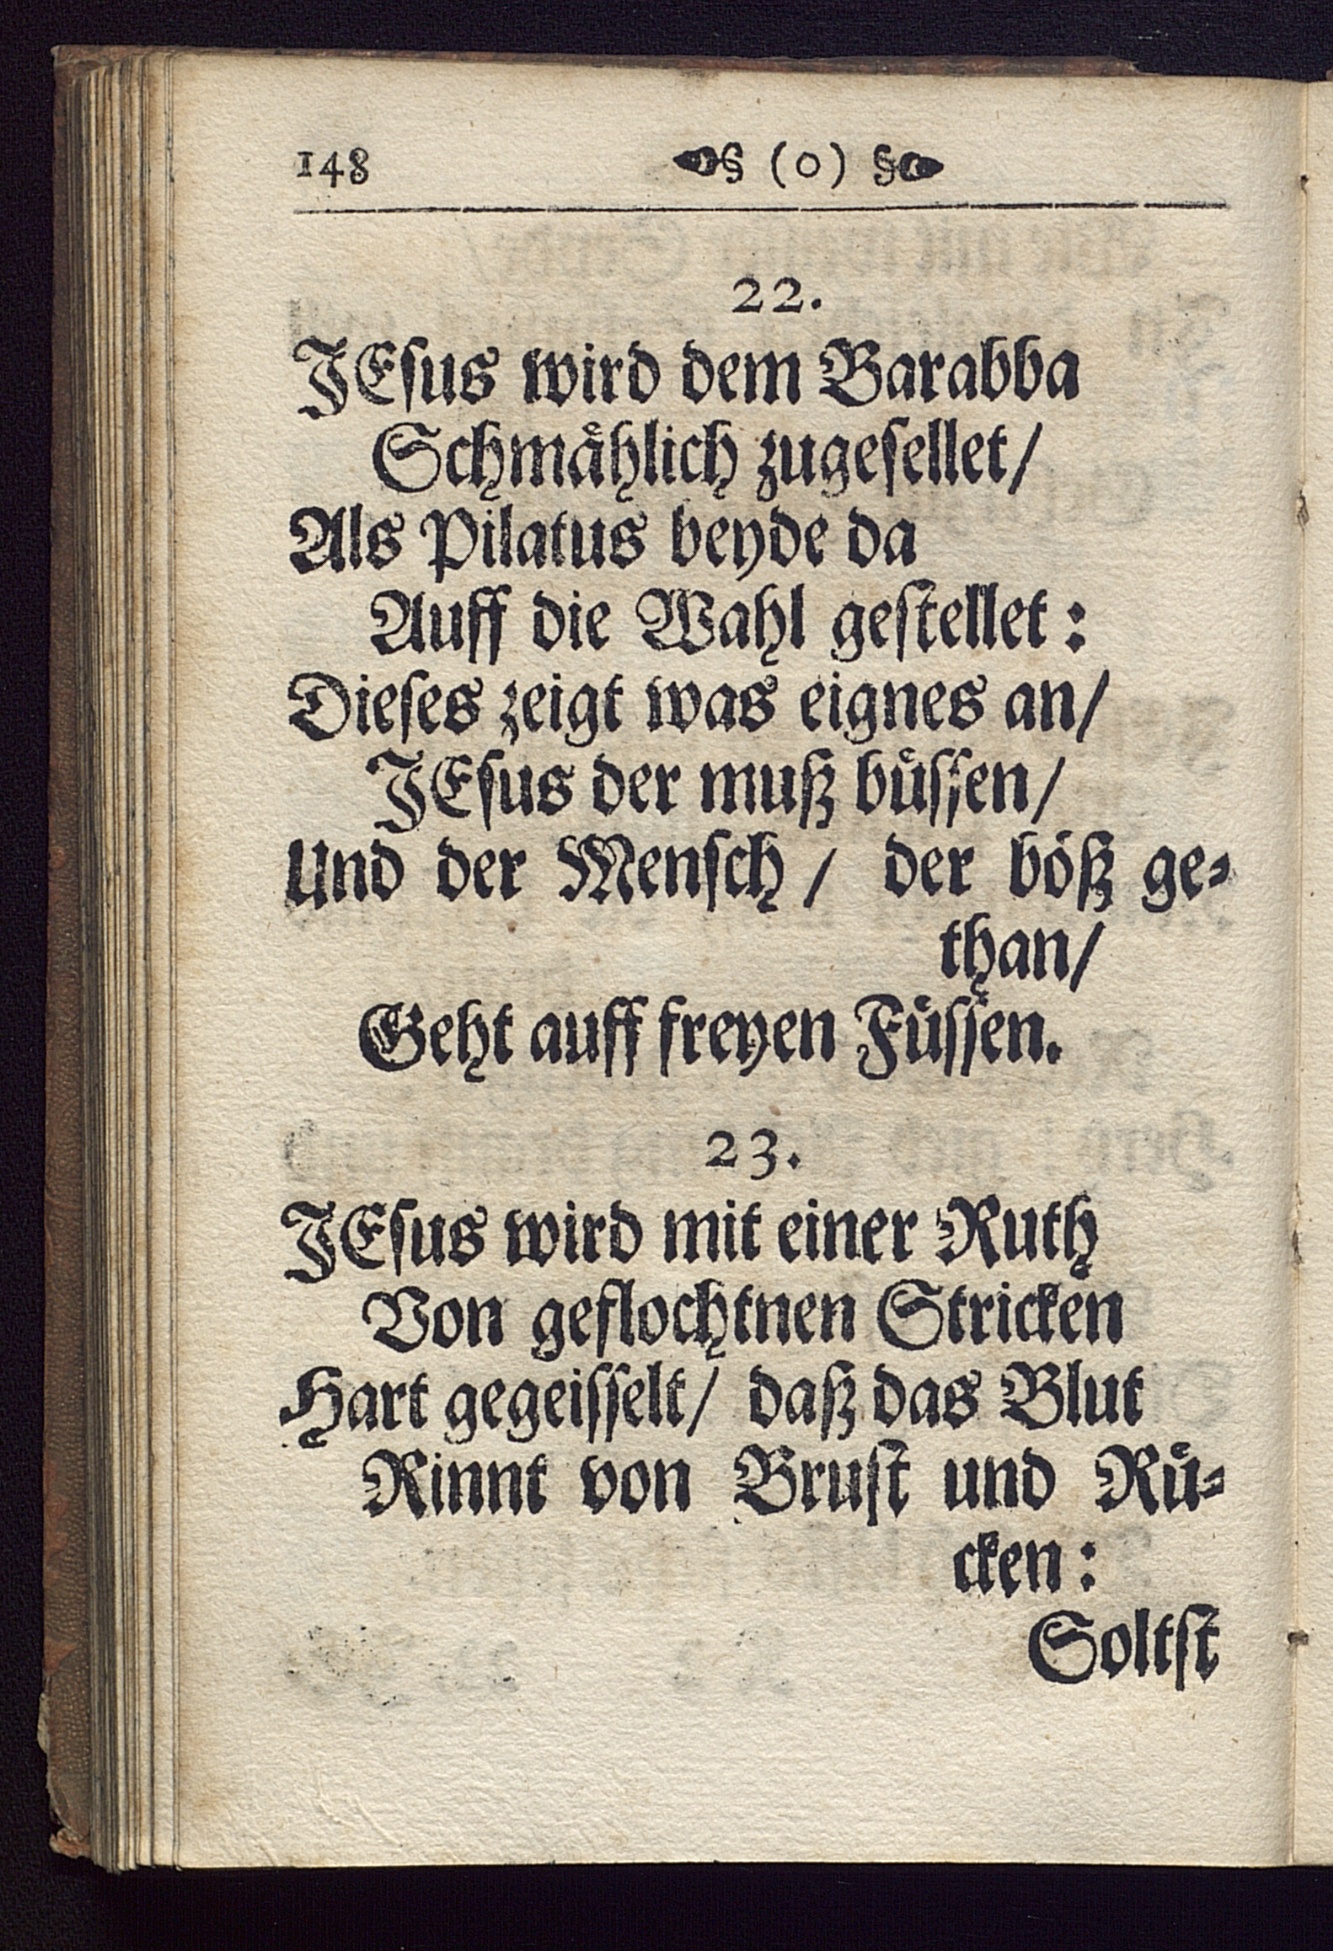 148 §(0)§
22.
JEſus wird dem Barabba
Schmaͤhlich zugeſellet/
Als Pilatus beyde da
Auff die Wahl geſtellet:
Dieſes zeigt was eignes an/
JEſus der muß buͤſſen/
Und der Menſch/ der boͤß ge⸗
than/
Geht auff freyen Fuͤſſen.
23.
JEſus wird mit einer Ruth
Von geflochtnen Stricken
Hart gegeiſſelt/ daß das Blut
Rinnt von Bruſt und Ruͤ⸗
cken:
Soltſt